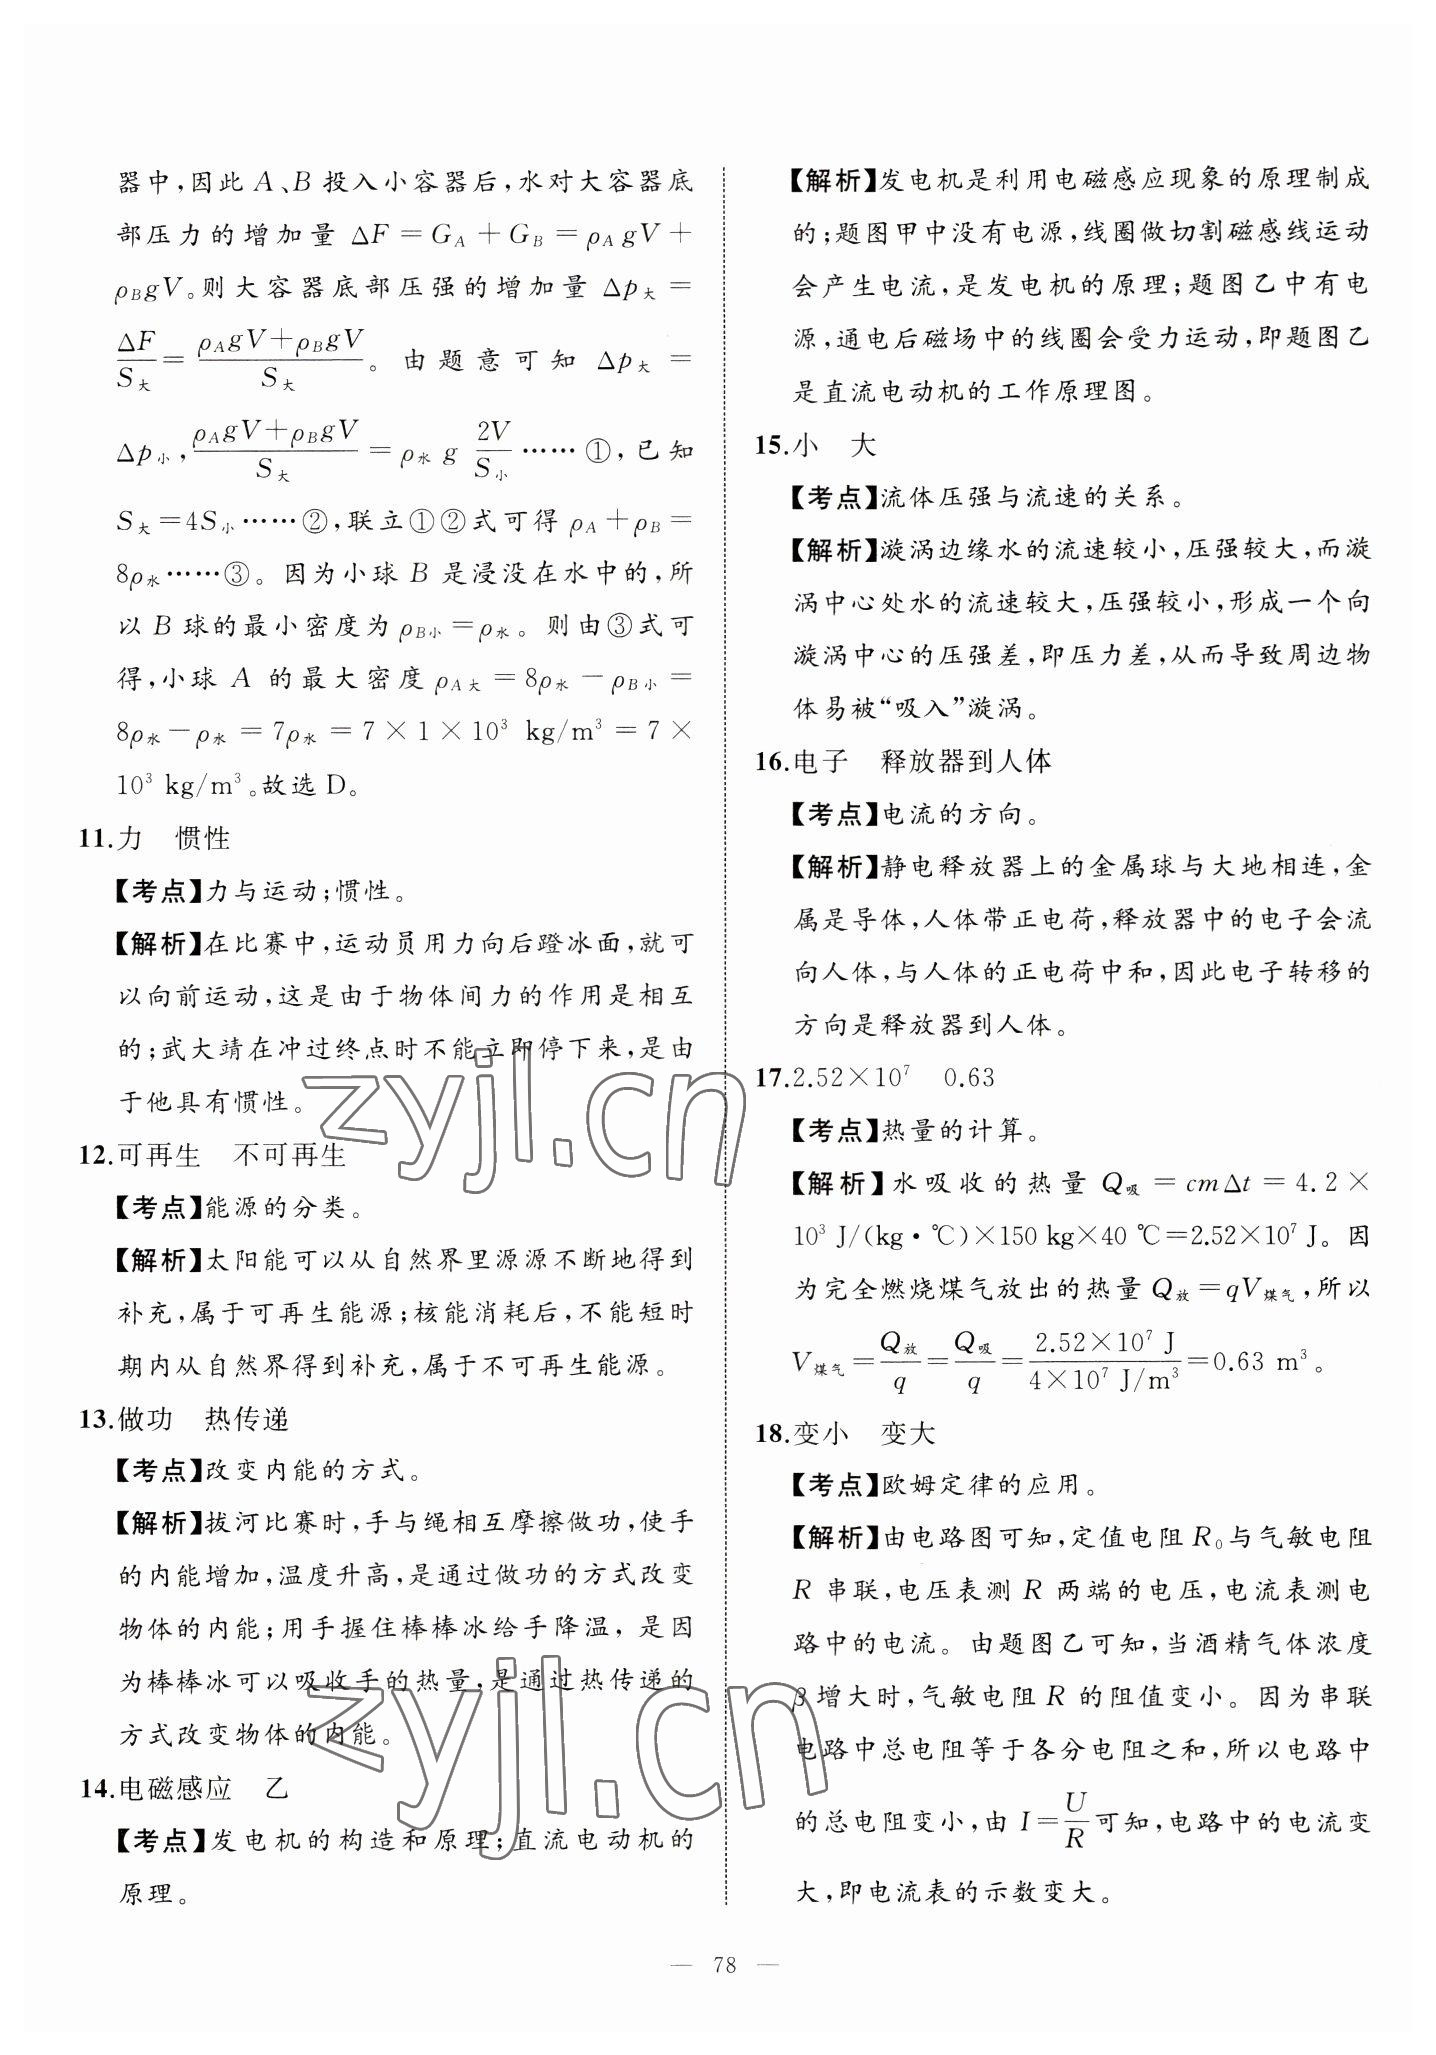 器中,因此 A、B 投入小容器后,水对大容器底
部压力的增加量 ΔF＝G_A＋G_B＝ρ_A gV＋
ρ_B gV。则大容器底部压强的增加量 Δp_大＝
ΔF/S_大＝(ρ_A gV＋ρ_B gV)/S_大。由题意可知 Δp_大＝
Δp_小,(ρ_A gV＋ρ_B gV)/S_大＝ρ_水 g 2V/S_小……①,已知
S_大＝4S_小……②,联立①②式可得 ρ_A＋ρ_B＝
8ρ_水……③。因为小球 B 是浸没在水中的,所
以 B 球的最小密度为 ρ_B小＝ρ_水。则由③式可
得,小球 A 的最大密度 ρ_A大＝8ρ_水－ρ_B小＝
8ρ_水－ρ_水＝7ρ_水＝7×1×10³ kg/m³＝7×
10³ kg/m³。故选 D。
11.力 惯性
【考点】力与运动;惯性。
【解析】在比赛中,运动员用力向后蹬冰面,就可
以向前运动,这是由于物体间力的作用是相互
的;武大靖在冲过终点时不能立即停下来,是由
于他具有惯性。
12.可再生 不可再生
【考点】能源的分类。
【解析】太阳能可以从自然界里源源不断地得到
补充,属于可再生能源;核能消耗后,不能短时
期内从自然界得到补充,属于不可再生能源。
13.做功 热传递
【考点】改变内能的方式。
【解析】拔河比赛时,手与绳相互摩擦做功,使手
的内能增加,温度升高,是通过做功的方式改变
物体的内能;用手握住棒棒冰给手降温,是因
为棒棒冰可以吸收手的热量,是通过热传递的
方式改变物体的内能。
14.电磁感应 乙
【考点】发电机的构造和原理;直流电动机的
原理。
【解析】发电机是利用电磁感应现象的原理制成
的;题图甲中没有电源,线圈做切割磁感线运动
会产生电流,是发电机的原理;题图乙中有电
源,通电后磁场中的线圈会受力运动,即题图乙
是直流电动机的工作原理图。
15.小 大
【考点】流体压强与流速的关系。
【解析】漩涡边缘水的流速较小,压强较大,而漩
涡中心处水的流速较大,压强较小,形成一个向
漩涡中心的压强差,即压力差,从而导致周边物
体易被“吸入”漩涡。
16.电子 释放器到人体
【考点】电流的方向。
【解析】静电释放器上的金属球与大地相连,金
属是导体,人体带正电荷,释放器中的电子会流
向人体,与人体的正电荷中和,因此电子转移的
方向是释放器到人体。
17.2.52×10⁷ 0.63
【考点】热量的计算。
【解析】水吸收的热量 Q_吸＝cmΔt＝4.2×
10³ J/(kg·℃)×150 kg×40 ℃＝2.52×10⁷ J。因
为完全燃烧煤气放出的热量 Q_放＝qV_煤气,所以
V_煤气＝Q_放/q＝Q_吸/q＝(2.52×10⁷ J)/(4×10⁷ J/m³)＝0.63 m³。
18.变小 变大
【考点】欧姆定律的应用。
【解析】由电路图可知,定值电阻 R₀与气敏电阻
R 串联,电压表测 R 两端的电压,电流表测电
路中的电流。由题图乙可知,当酒精气体浓度
β增大时,气敏电阻 R 的阻值变小。因为串联
电路中总电阻等于各分电阻之和,所以电路中
的总电阻变小,由 I＝U/R可知,电路中的电流变
大,即电流表的示数变大。
— 78 —
zyjl.cn
zyjl.cn